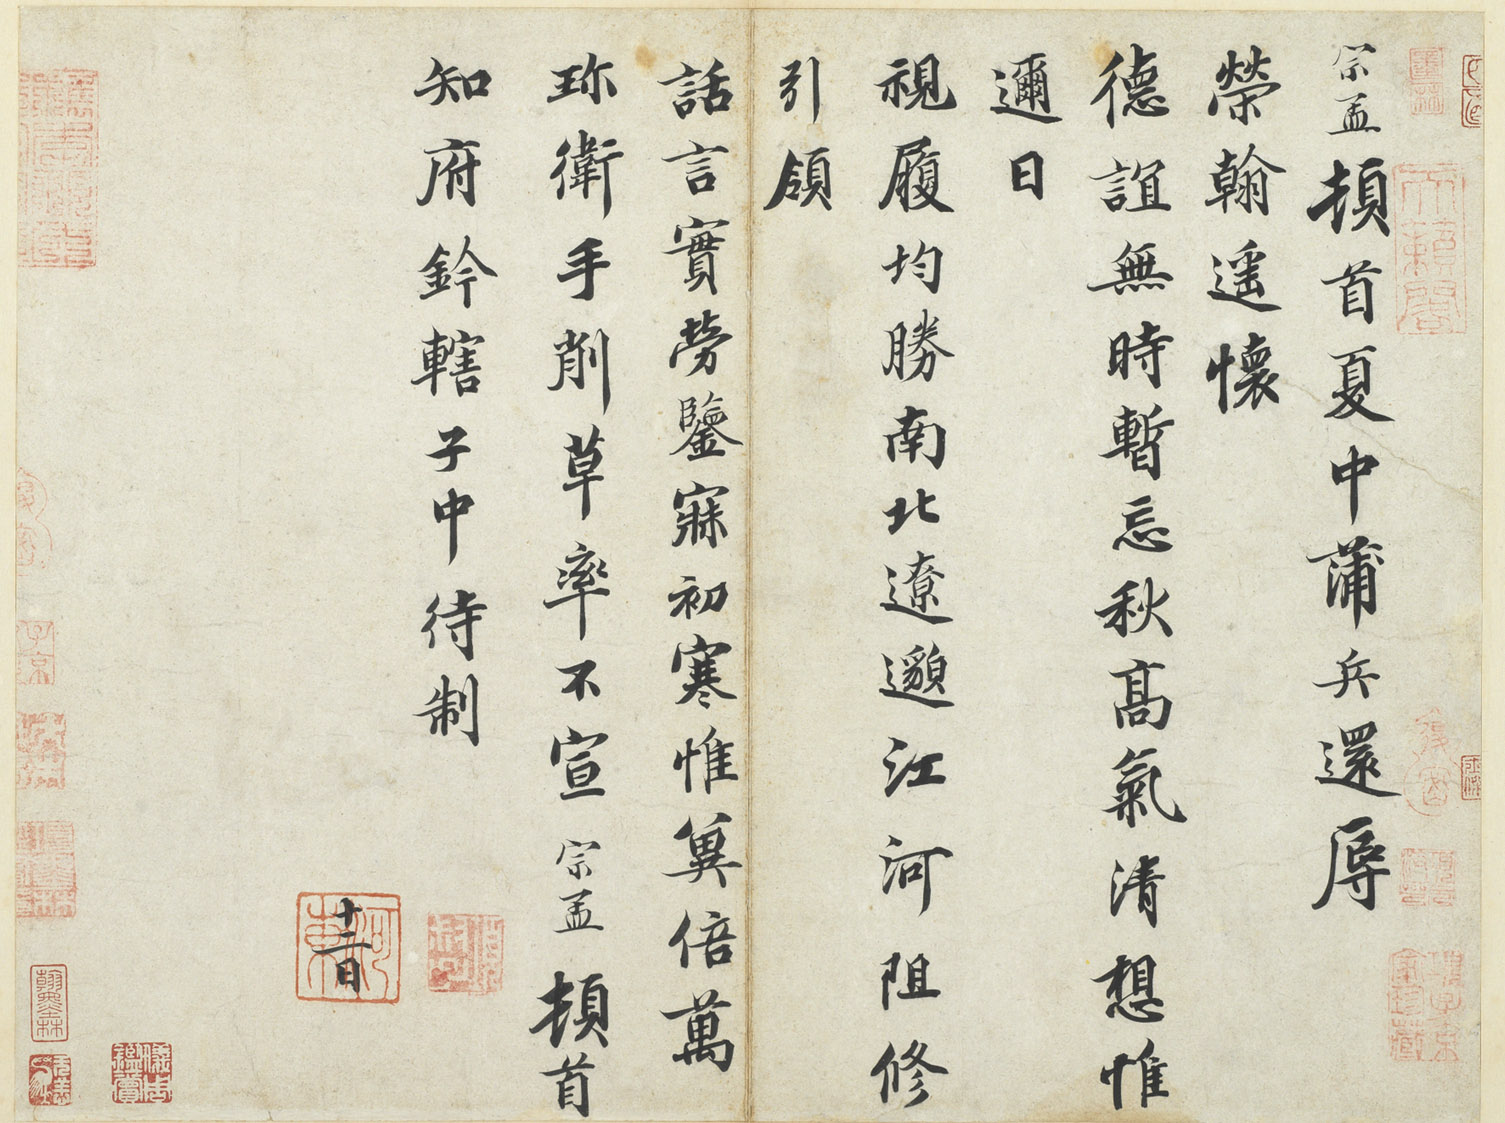 宗孟頓首夏中蒲兵還辱
榮翰遥懷
德誼無時暫忘秋髙氣清想惟
邇日
視履均勝南北遼邈江河阻修
引領
話言實勞鑒寐初寒惟兾倍萬
珎衛手削草率不宣宗孟頓首
知府鈐轄子中待制
十二日
河東
翰墨林